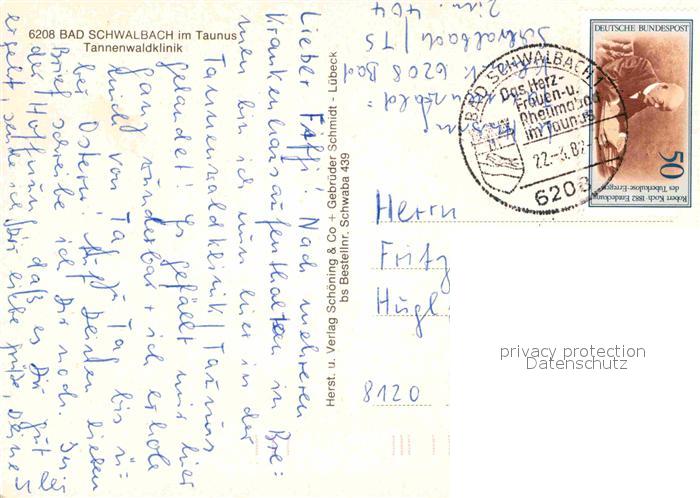 6208 BAD SCHWALBACH im Taunus
Tannenwaldklinik
Lieber Fritz! Nach mehreren
Krankenhausaufenthalten in Bre=
men bin ich nun hier in der
Tannenwaldklinik/Taunus
gelandet! Es gefällt mir hier
ganz wunderbar + ich erhole
mich von Tag zu Tag bis
bei Ostern! Auf Deinen lieben
Brief schreibe ich Dir noch. In
der Hoffnung, daß es Dir gut
ergeht, sende ich Dir Grüße, Deine
Herst. u. Verlag Schöning & Co + Gebrüder Schmidt - Lübeck
bs Bestellnr. Schwaba 439
6208 Bad
Schwalbach/TS
Zim. 404
DEUTSCHE BUNDESPOST
50
Robert Koch 1882 Entdeckung
der Tuberkulose-Erreger
BAD SCHWALBACH 1
Das Herz-
Frauen-u.
Rheumabad
im Taunus
22.-3.82.-
6208
Herrn
Fritz
Hugl
8120
privacy protection
Datenschutz